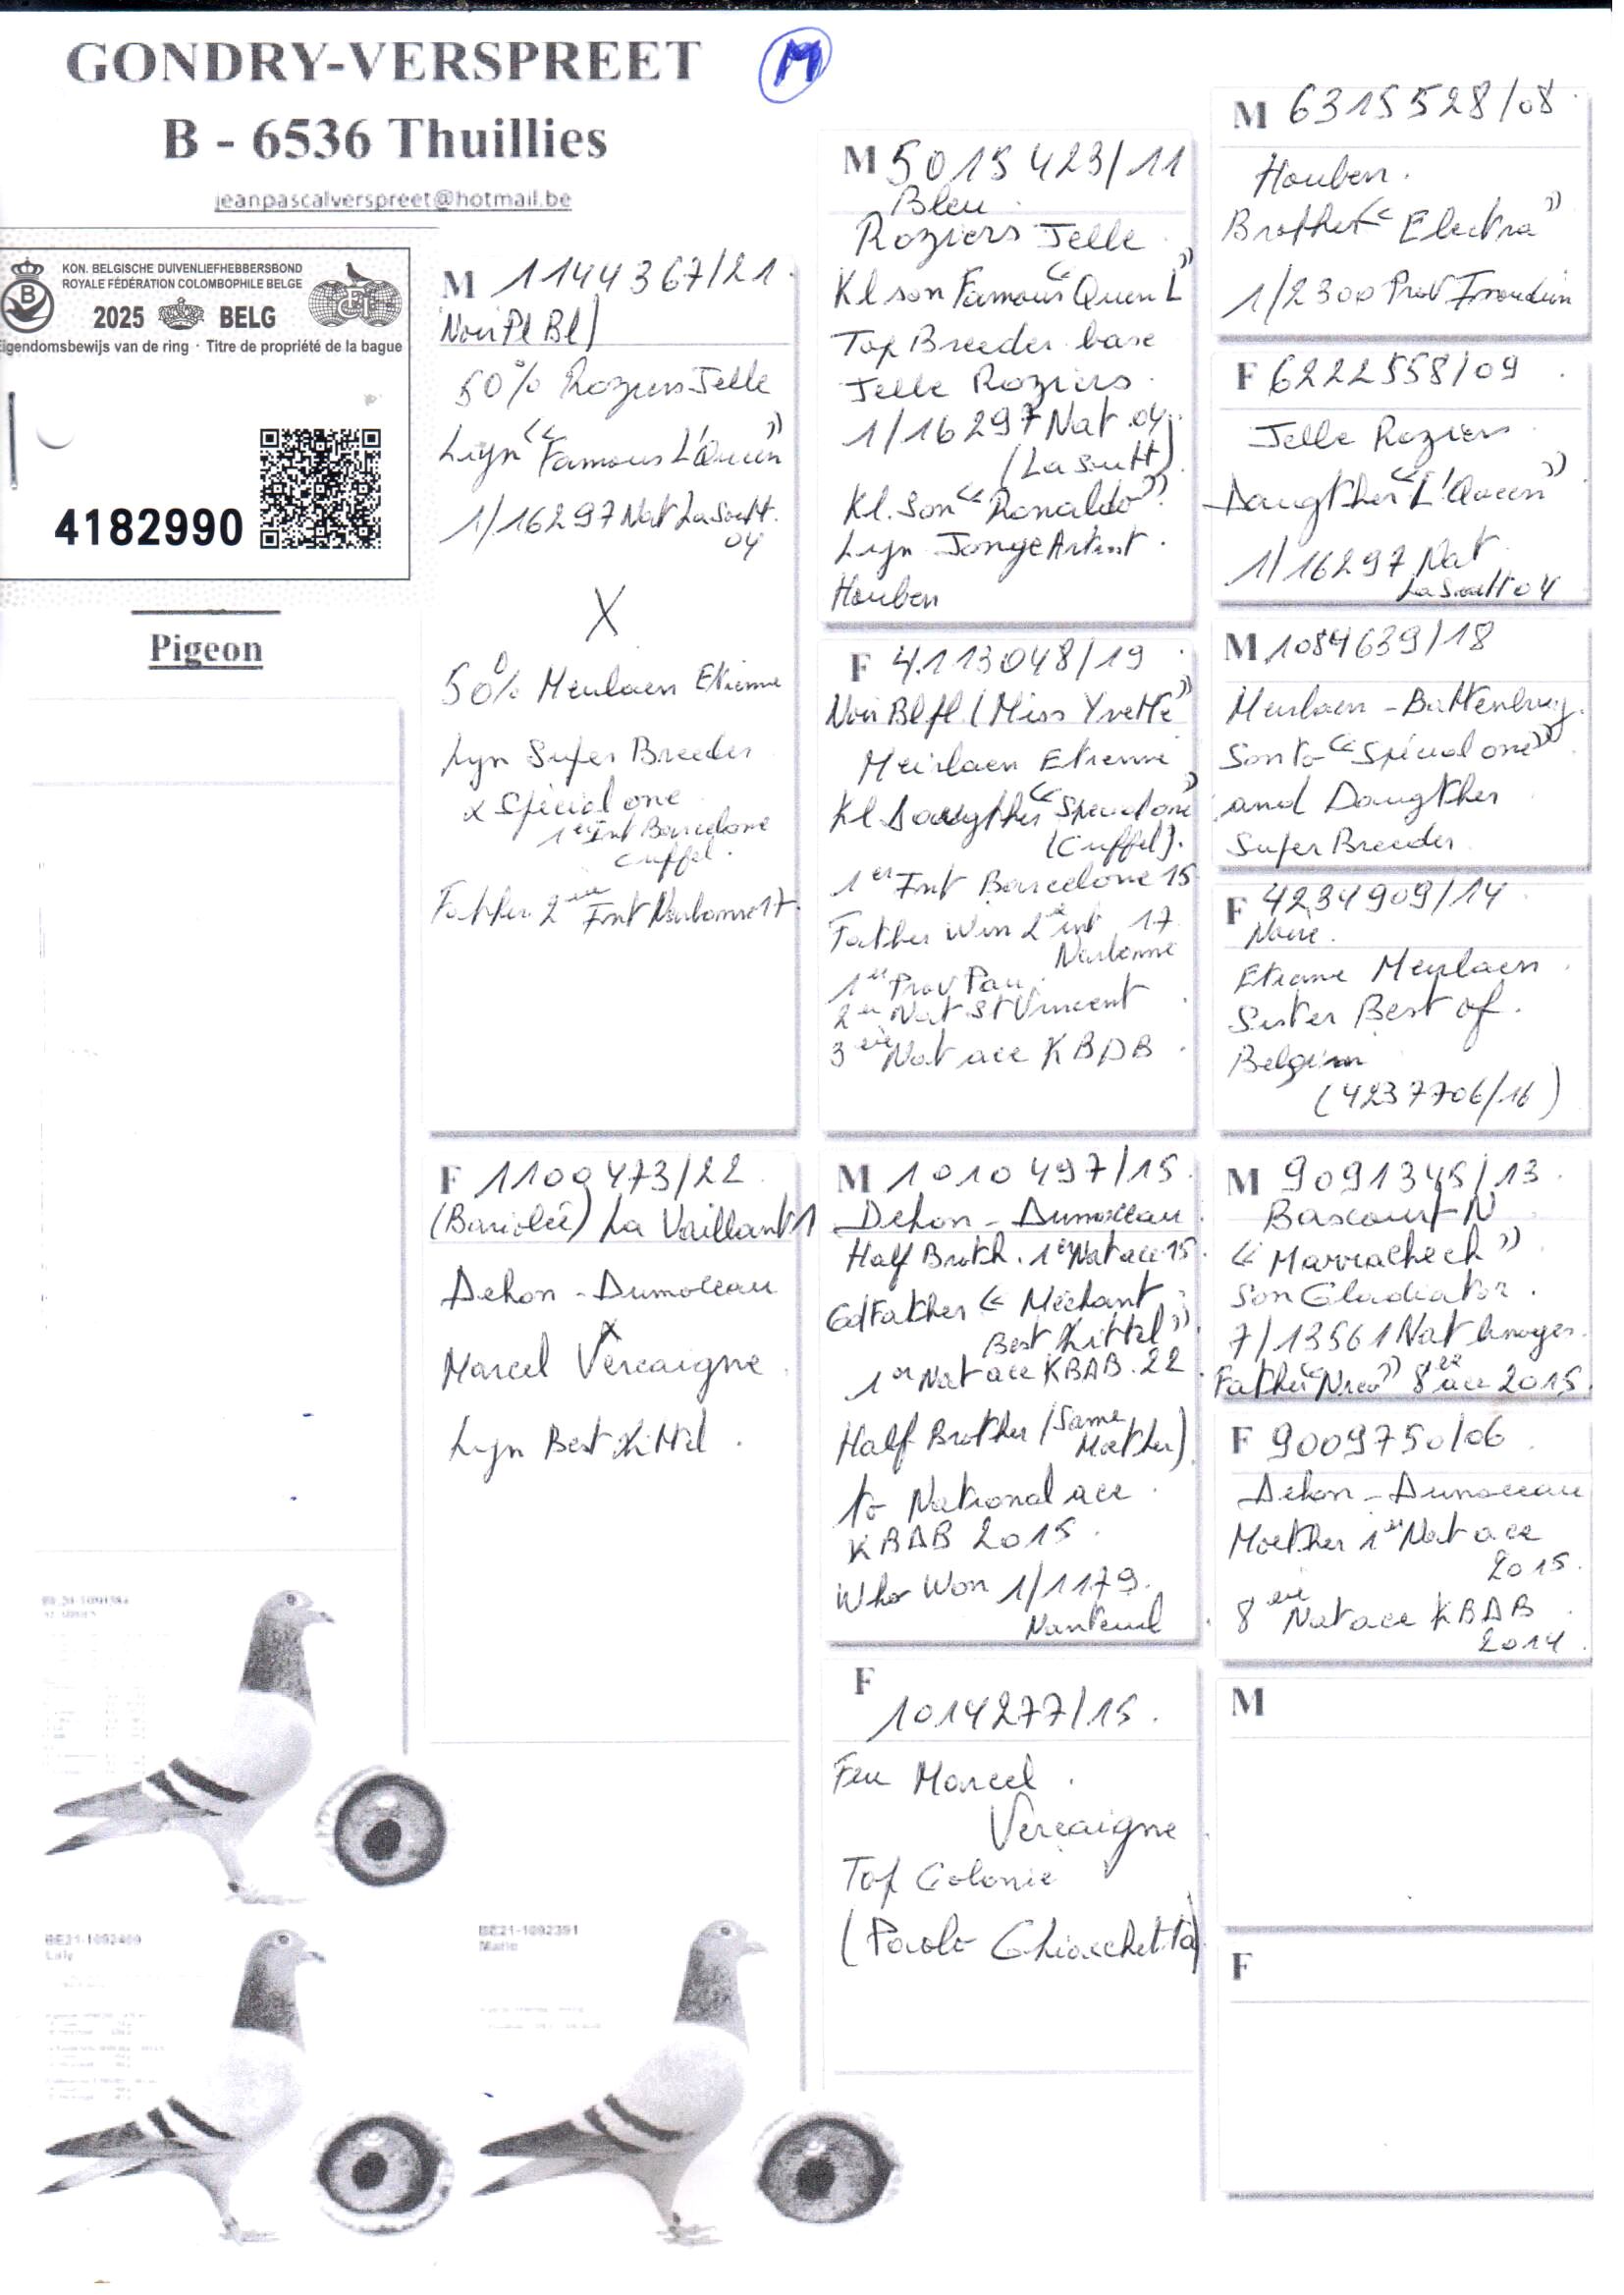 GONDRY-VERSPREET
M
B - 6536 Thuillies
jeanpascalverspreet@hotmail.be
KON. BELGISCHE DUIVENLIEFHEBBERSBOND
ROYALE FÉDÉRATION COLOMBOPHILE BELGE
2025 BELG
Eigendomsbewijs van de ring · Titre de propriété de la bague
4182990
Pigeon
M 1144367/21
Noir Pl Bl)
50% Roziers Jelle
Lyn "Famous L'Queen"
1/16297 Nat La Sout.
04
X
50% Meulaen Etienne
Lyn Super Breeder
x Spécial one
1er Int Barcelone
Cuffel.
Father 2ème Int Narbonne 17
F 1100473/22
(Bariolée) La Vaillant 1
Dehon - Dumoceau
X
Marcel Vercaigne
Lyn Best Kittel.
M 5015423/11
Bleu.
Roziers Jelle
Kl son Famous "Queen L"
Top Breeder base
Jelle Roziers.
1/16297 Nat 04
(La Soutt)
Kl. Son "Ronaldo"
Lyn Jonge Artist.
Houben
F 4113048/19
Noir Bl fl (Miss Yvette"
Meirlaen Etienne
Kl Daugther "Special one"
(Cuffel).
1er Int Barcelone 15
Father Win 2e int 17
Narbonne
1er Prov Pau
2e Nat St Vincent
3ème Nat ace KBDB
M 1010497/15
Dehon - Dumoceau
Half Broth. 1er Nat ace 15
GdFather " Méchant
Best Kittel"
1er Nat ace KBDB. 22
Half Brother (Same
Mother)
to National ace
KBDB 2015.
Who Won 1/1179.
Nanteuil
F
1014277/15.
Feu Marcel
Vercaigne
Top Colonie
(Paolo Chiacchetta)
M 6315528/08
Houben.
Brother "Electra"
1/2300 Prov Issoudun
F 6222558/09
Jelle Roziers
Daugther "L'Queen"
1/16297 Nat
La Soutt 04
M 1084639/18
Meulaen - Battenbrug.
Son to "Spécial one"
and Daugther
Super Breeder
F 4234909/14
Noire.
Etienne Meulaen
Sister Best of.
Belgium
(4237706/16)
M 9091345/13
Bascourt N
"Marracheck"
Son Gladiator.
7/13561 Nat Limoges.
Father "Nico" 8ee ace 2015.
F 9009750/06
Dehon - Dumoceau
Moether 1er Nat ace
2015.
8ème Nat ace KBDB
2014.
M
F
BE21-1092409
BE21-1092391
Marie